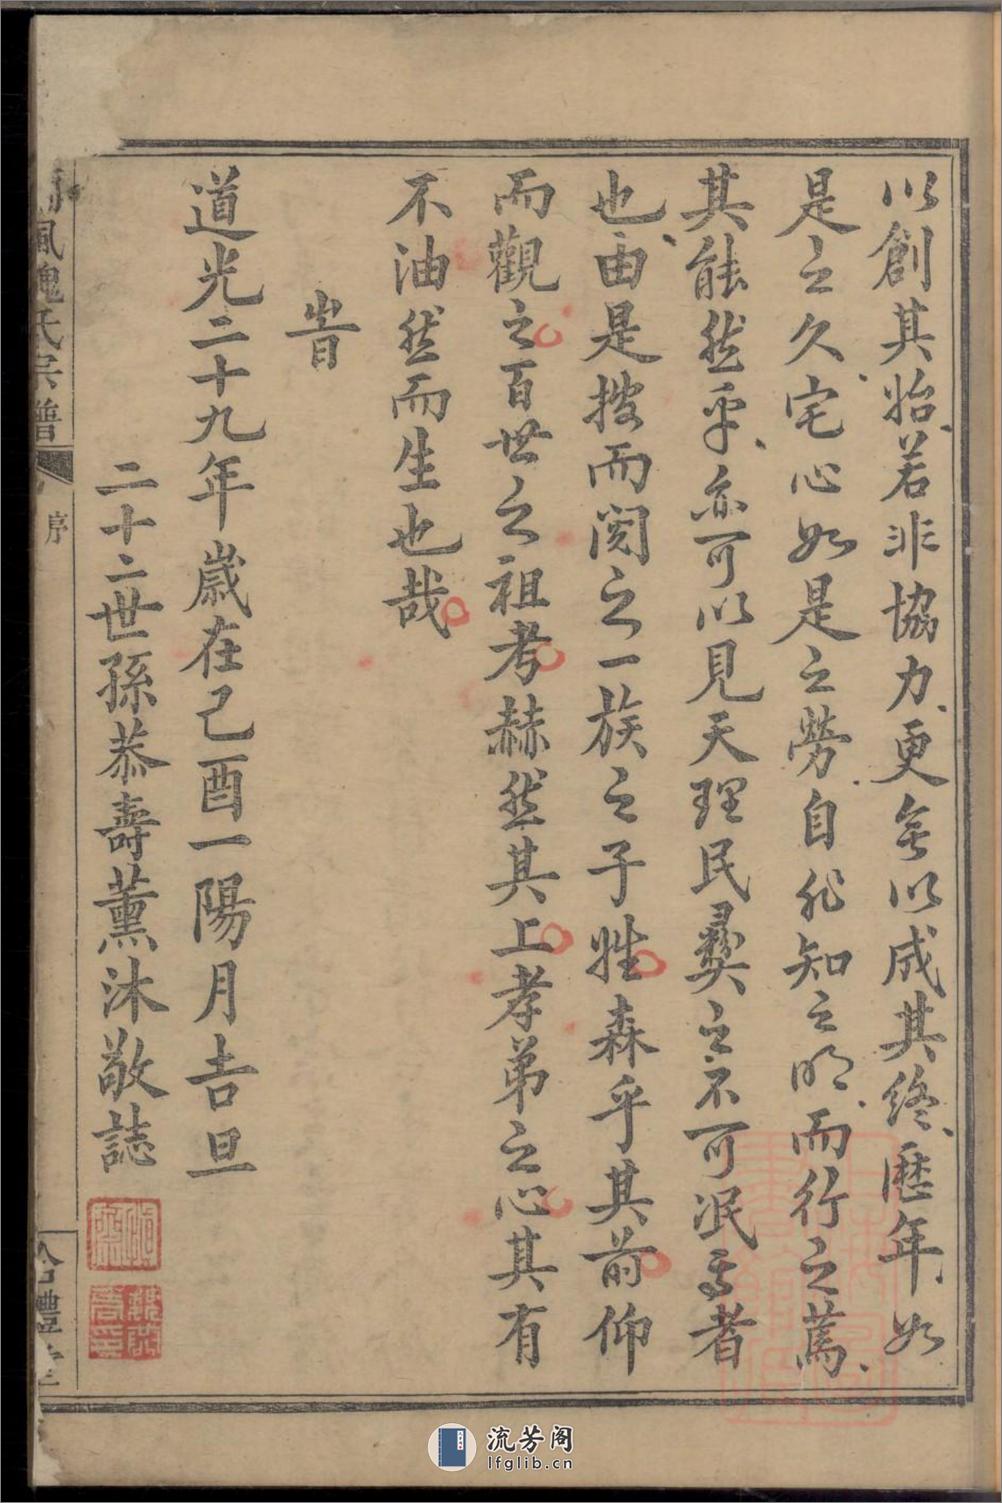 以創其始若非協力更無以成其終歷年如
是之久宅心如是之勞自非知之明而行之篤
其能然乎亦可以見天理民彝之不可泯焉者
也由是披而閱之一族之子姓森乎其前仰
而觀之百世之祖考赫然其上孝弟之心其有
不油然而生也哉
旹
道光二十九年歲在己酉一陽月吉旦
二十二世孫恭壽薰沐敬誌
風魏氏宗譜
序
流芳阁
lfglib.cn